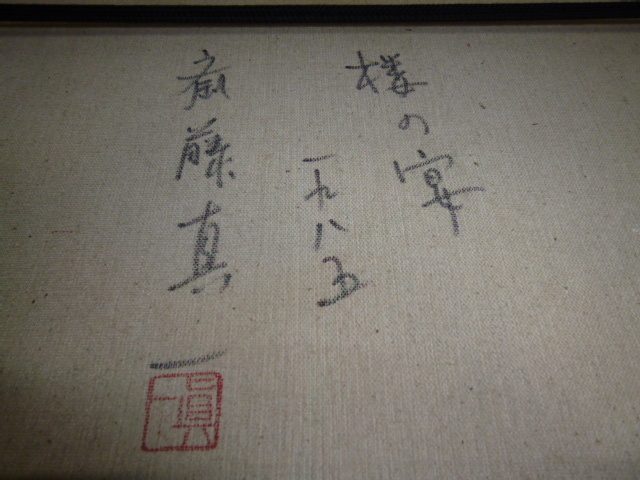 楼の宴
一九八五
斎藤真一
眞一